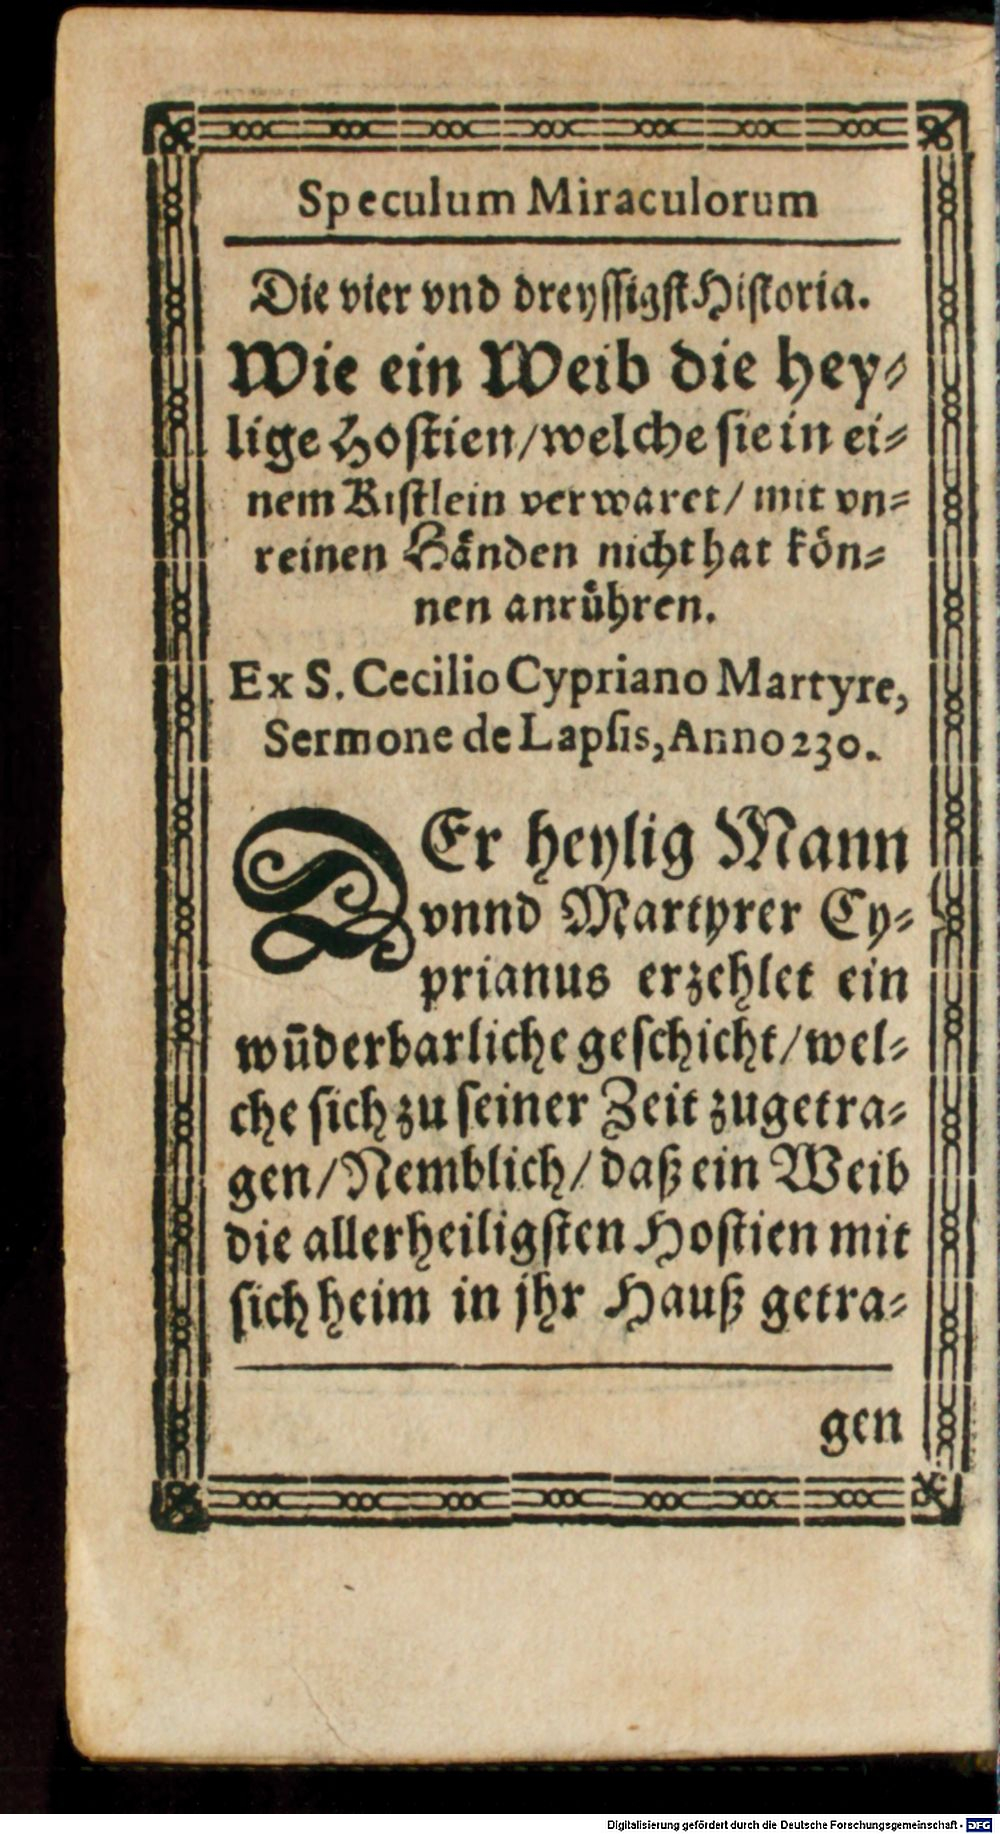 Speculum Miraculorum
Die vier vnd dreyſſigſt Hiſtoria.
Wie ein Weib die hey⸗
lige Hoſtien/welche ſie in ei⸗
nem Kiſtlein verwaret/ mit vn⸗
reinen Haͤnden nicht hat koͤn⸗
nen anruͤhren.
Ex S. Cecilio Cypriano Martyre,
Sermone de Lapſis, Anno 230.
DEr heylig Mann
vnnd Martyrer Cy⸗
prianus erzehlet ein
wūderbarliche geſchicht/wel⸗
che ſich zu ſeiner Zeit zugetra⸗
gen/Nemblich/ daß ein Weib
die allerheiligſten Hoſtien mit
ſich heim in jhr Hauß getra⸗
gen
Digitalisierung gefördert durch die Deutsche Forschungsgemeinschaft - DFG